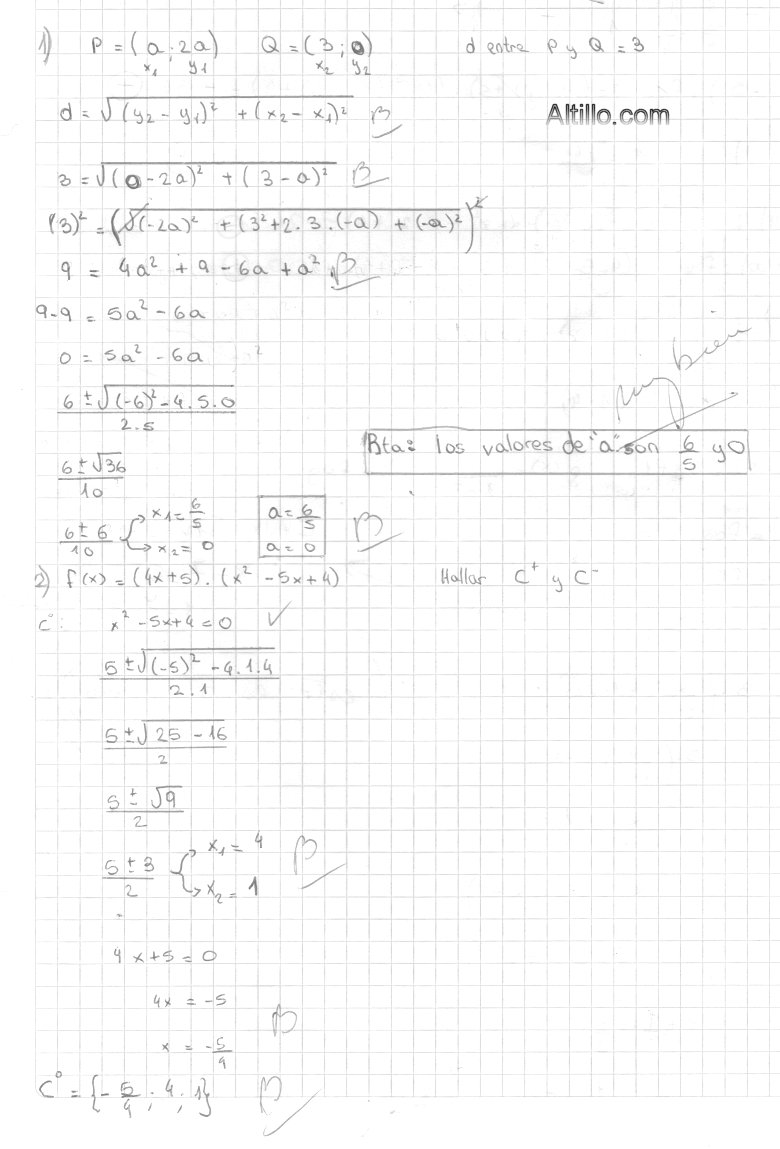 1) P = (a ; 2a) Q = (3 ; 0) d entre P y Q = 3
x₁ y₁ x₂ y₂
d = √((y₂ - y₁)² + (x₂ - x₁)²) B
Altillo.com
3 = √((0 - 2a)² + (3 - a)²) B
(3)² = (√((-2a)² + (3² + 2.3.(-a) + (-a)²))²
9 = 4a² + 9 - 6a + a² B
9-9 = 5a² - 6a
0 = 5a² - 6a
6 ± √((-6)² - 4.5.0) / 2.5
muy bien
Rta: los valores de "a" son 6/5 y 0
6 ± √36 / 10
6 ± 6 / 10 x₁ = 6/5 x₂ = 0 a = 6/5 a = 0 B
2) f(x) = (4x+5) . (x² - 5x + 4) Hallar C⁺ y C⁻
C°: x² - 5x + 4 = 0 ✓
5 ± √((-5)² - 4.1.4) / 2.1
5 ± √(25 - 16) / 2
5 ± √9 / 2
5 ± 3 / 2 x₁ = 4 x₂ = 1 B
4x + 5 = 0
4x = -5
B
x = -5/4
C° = {-5/4 ; 4 ; 1} B